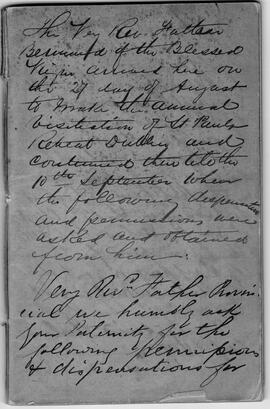 The Very Rev. Father
Bernard of the Blessed
Virgin arrived here on
the 27 day of August
to make the annual
visitation of St Pauls
Retreat Dublin and
continued then till the
10th September when
the following dispensations
and permissions were
asked and obtained
from him:
Very Revd. Father Provin
cial we humbly ask
your Paternity for the
following permissions
& dispensations for